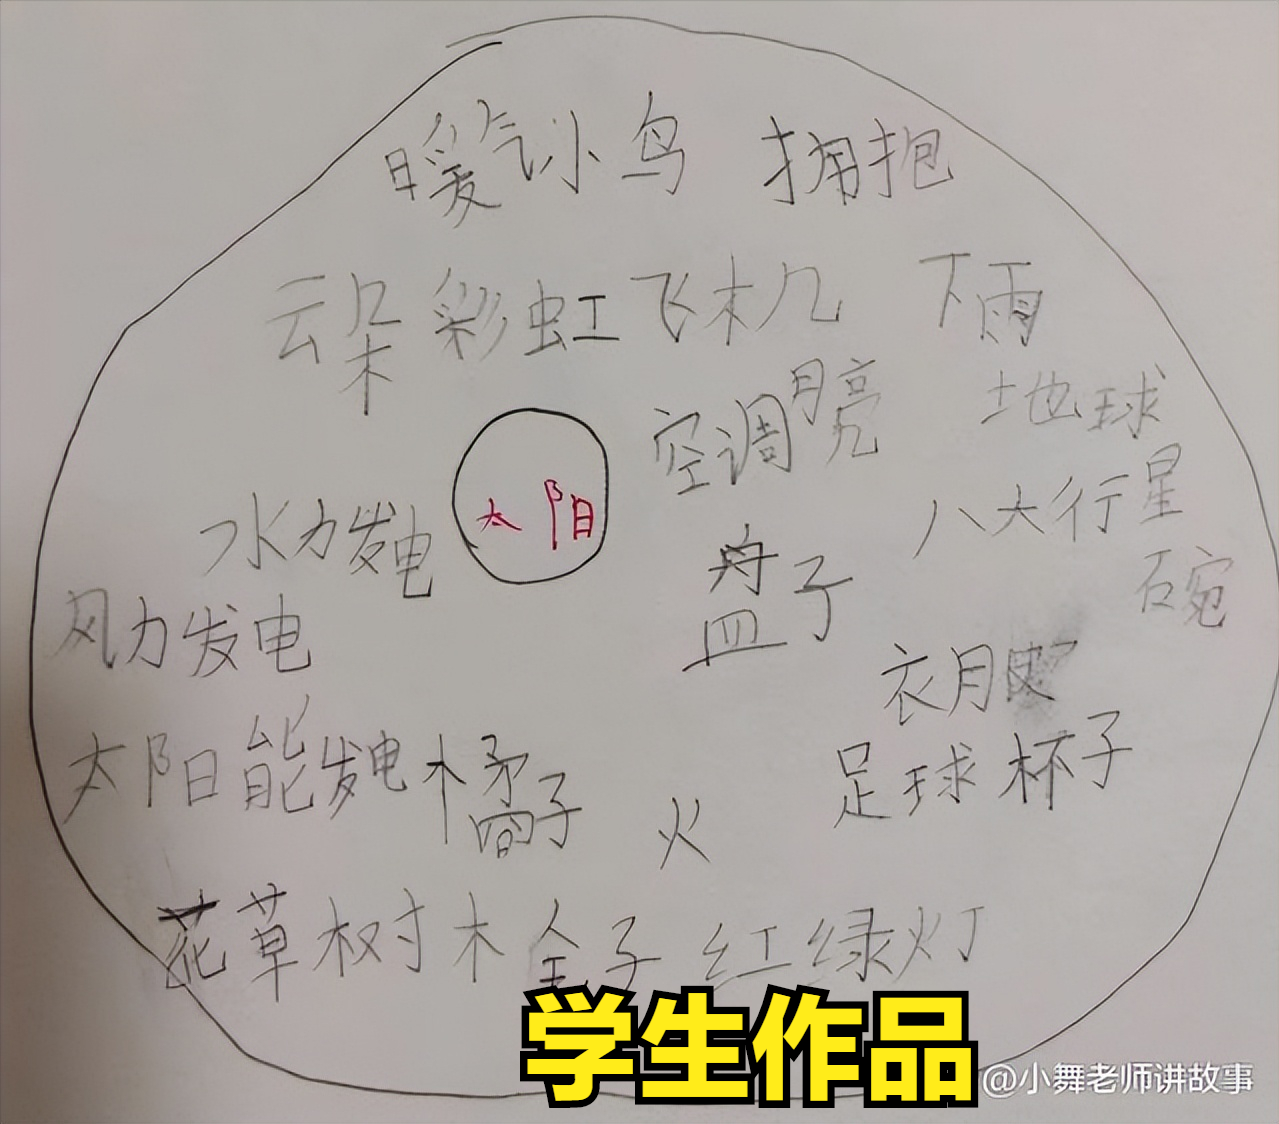 暖气 小鸟 拥抱
云朵 彩虹 飞机 下雨
空调 月亮 地球
太阳
水力发电 八大行星
盘子 碗
风力发电
衣服
太阳能发电 橘子 火 足球 杯子
花草 树木 全子 红绿灯
学生作品
@小舞老师讲故事